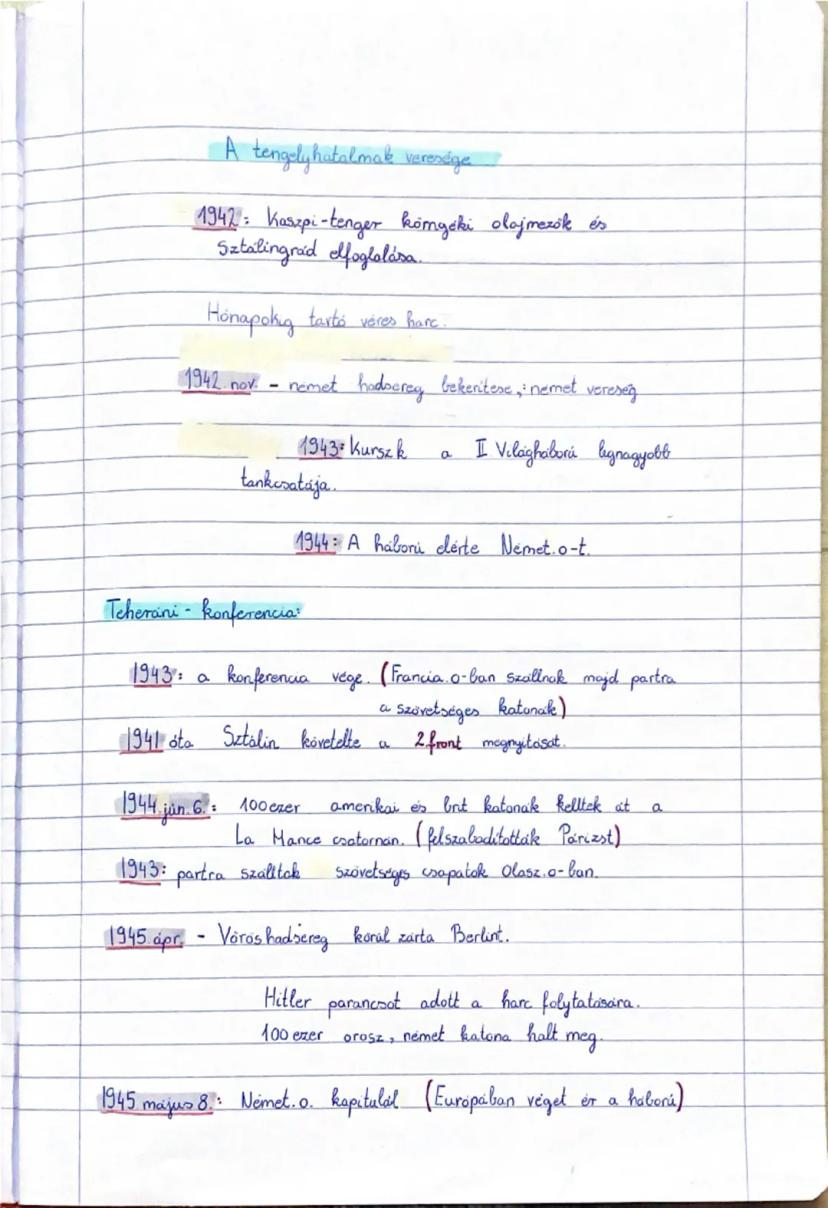 A tengelyhatalmak veresége
1942: Kaszpi-tenger környéki olajmezők és
Sztálingrád elfoglalása.
Hónapokig tartó véres harc.
1942. nov. - német hadsereg bekerítése, : német vereség
1943: Kurszk a II. Világháború legnagyobb
tankcsatája.
1944: A háború elérte Német.o-t.
Teheráni - konferencia:
1943: a konferencia vége. (Francia.o-ban szállnak majd partra
a szövetséges katonák)
1941 óta Sztálin követelte a 2. front megnyitását.
1944. jún. 6.: 100 ezer amerikai és brit katonák kelltek át a
La Mance csatornán. (felszabadították Párizst)
1943: partra szálltak szövetséges csapatok Olasz.o-ban.
1945. ápr. - Vörös hadsereg körül zárta Berlint.
Hitler parancsot adott a harc folytatására.
100 ezer orosz, német katona halt meg.
1945 május 8.: Német.o. kapitulál (Európában véget ér a háború)